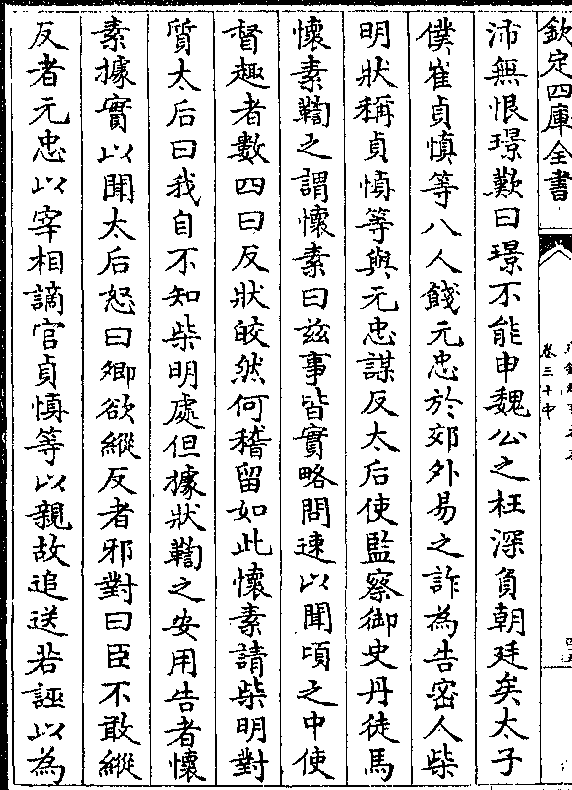 欽定四庫全書
卷三十中
沛無恨璟歎曰璟不能申魏公之枉深負朝廷矣太子
僕崔貞慎等八人餞元忠於郊外易之詐為告密人柴
明狀稱貞慎等與元忠謀反太后使監察御史丹徒馬
懷素鞫之謂懷素曰兹事皆實略問速以聞頃之中使
督趣者數四曰反狀皎然何稽留如此懷素請柴明對
質太后曰我自不知柴明處但據狀鞫之安用告者懷
素據實以聞太后怒曰卿欲縱反者邪對曰臣不敢縱
反者元忠以宰相謫官貞慎等以親故追送若誣以為